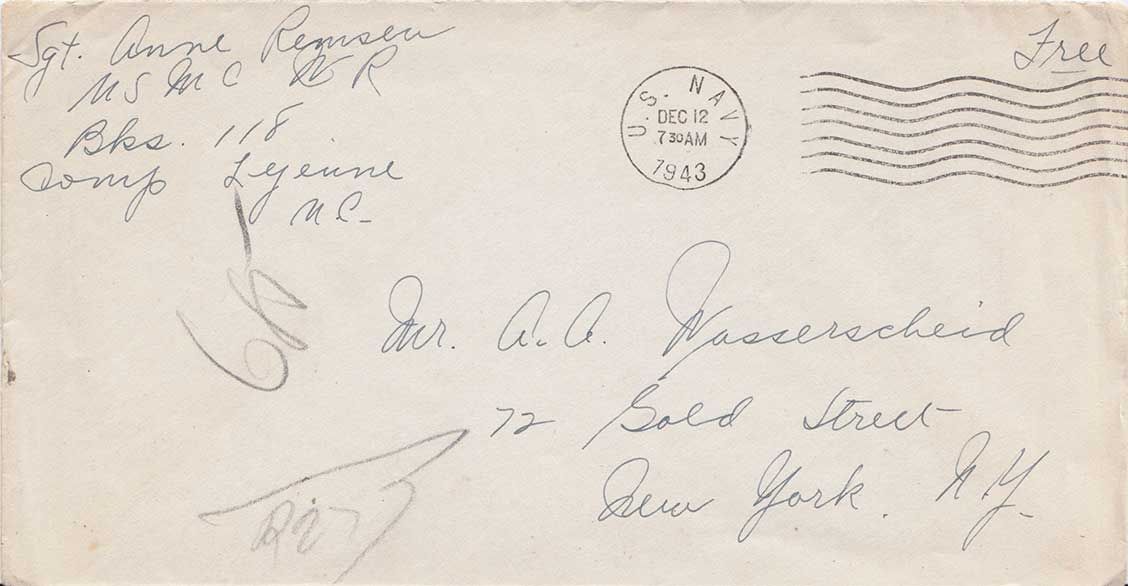 Sgt. Anne Remsen
USMC WR
Bks. 118
Camp Lejeune
N.C.
Free
U.S. NAVY
DEC 12
7 30 AM
1943
Mr. A. A. Wasserscheid
72 Gold Street
New York. N.Y.